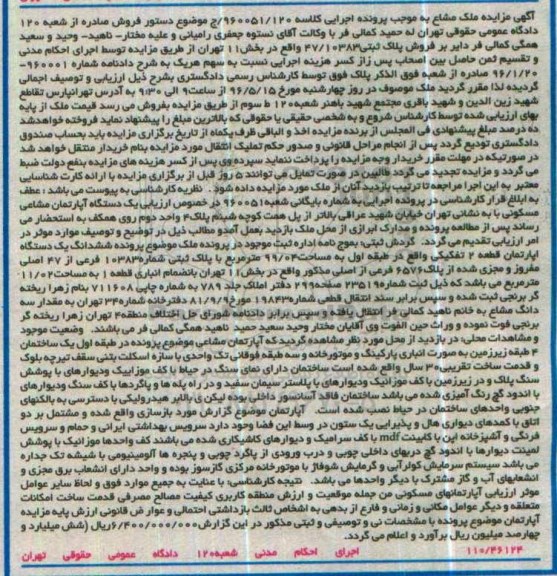 آگهی مزایده ملک مشاع به موجب پرونده اجرایی کلاسه ۹۶۰۰۵۱/۱۲۰/ج موضوع دستور فروش صادره از شعبه ۱۲۰
دادگاه عمومی حقوقی تهران له حمید کمالی فر با وکالت آقای نستوه جعفری رامیانی و علیه مختار- ناهید- وحید و سعید
همگی کمالی فر دایر بر فروش پلاک ثبتی ۴۷/۱۰۳۸۳ واقع در بخش ۱۱ تهران از طریق مزایده توسط اجرای احکام مدنی
و تقسیم ثمن حاصل بین اصحاب پس از کسر هزینه اجرایی نسبت به سهم هریک به شرح دادنامه شماره ۹۶۰۰۰۱-
۹۶/۱/۲۰ صادره از شعبه فوق الذکر پلاک فوق توسط کارشناس رسمی دادگستری بشرح ذیل ارزیابی و توصیف اجمالی
گردیده لذا مقرر گردید ملک موصوف در روز چهارشنبه مورخ ۹۶/۵/۱۵ از ساعت ۹ الی ۹:۳۰ به آدرس تهرانپارس تقاطع
شهید زین الدین و شهید باقری مجتمع شهید باهنر شعبه ۱۲۰ ط سوم از طریق مزایده بفروش می رسد قیمت ملک از پایه
بهای ارزیابی شده توسط کارشناس شروع و به شخصی حقیقی یا حقوقی که بالاترین مبلغ را پیشنهاد نماید فروخته خواهدشد
ده درصد مبلغ پیشنهادی فی المجلس از برنده مزایده اخذ و الباقی ظرف یکماه از تاریخ برگزاری مزایده باید بحساب صندوق
دادگستری تودیع گردد پس از انجام مراحل قانونی و صدور حکم تملیک انتقال مورد مزایده بنام خریدار منتقل خواهد شد
در صورتیکه در مهلت مقرر خریدار وجه مزایده را پرداخت ننماید سپرده وی پس از کسر هزینه های مزایده بنفع دولت ضبط
می گردد و مزایده تجدید می گردد طالبین در صورت تمایل می توانند ۵ روز قبل از برگزاری مزایده با ارائه کارت شناسایی
معتبر به این اجرا مراجعه تا ترتیب بازدید آنان از ملک مورد مزایده داده شود. نظریه کارشناسی به پیوست می باشد: عطف
به ابلاغ قرار کارشناسی در پرونده اجرایی به شماره بایگانی شعبه ۹۶۰۰۵۱ در خصوص ارزیابی یک دستگاه آپارتمان مشاعی
مسکونی با به نشانی تهران خیابان شهید عراقی بالاتر از پل همت کوچه شبنم پلاک ۴ واحد دوم روی همکف به استحضار می
رساند پس از مطالعه پرونده و مدارک ابرازی از محل ملک بازدید بعمل آمده و مطالب ذیل در توضیح و توصیف موارد موثر در
امر ارزیابی تقدیم می گردد. گردش ثبتی: بموج نامه اداره ثبت موجود در پرونده ملک موضوع پرونده ششدانگ یک دستگاه
آپارتمان قطعه ۲ تفکیکی واقع در طبقه اول به مساحت ۹۹/۰۴ مترمربع با پلاک ثبتی شماره ۱۰۳۸۳ فرعی از ۴۷ اصلی
مفروز و مجزی شده از پلاک ۶۵۷۶ فرعی از اصلی مذکور واقع در بخش ۱۱ تهران بانضمام انباری قطعه ۱ به مساحت ۱۱/۰۲
مترمربع می باشد که ذیل ثبت شماره ۲۳۵۱۹ صفحه ۲۹۹ دفتر املاک جلد ۷۸۹ به شماره چاپی ۷۱۱۶۰۸ بنام زهرا ریخته
گر برنجی ثبت شده و سپس برابر سند انتقال قطعی شماره ۱۹۸۴۳ مورخ ۸۱/۹/۹ دفترخانه شماره ۳۴۰ تهران به مقدار سه
دانگ مشاع به خانم ناهید کمالی فر انتقال یافته و سپس برابر دادنامه شورای حل اختلاف منطقه ۴ تهران زهرا ریخته گر
برنجی فوت نموده و وراث حین الفوت وی آقایان مختار وحید سعید حمید ناهید همگی کمالی فر می باشند. وضعیت موجود
و مشاهدات محلی: در بازدید از محل مورد نظر مشاهده گردید که آپارتمان مشاعی موضوع پرونده در طبقه اول یک ساختمان
۴ طبقه زیرزمین به صورت انباری پارکینگ و موتورخانه و سه طبقه فوقانی تک واحدی با سازه اسکلت بتنی سقف تیرچه بلوک
و قدمت ساخت تقریبی ۳۰ سال واقع شده است ساختمان دارای نمای سنگ در حیاط با کف موزاییک ودیوارهای با پوشش
سنگ پلاک و در زیرزمین با کف موزائیک ودیوارهای با پلاستر سیمان سفید و در راه پله ها و پاگردها با کف سنگ ودیوارهای
با اندود گچ رنگ آمیزی شده می باشد ساختمان فاقد آسانسور داخلی بوده لیکن بالابر هیدرولیکی با دسترسی به بالکنهای
جنوبی واحدهای ساختمان در حیاط نصب شده است. آپارتمان موضوع گزارش مورد بازسازی واقع شده و مشتمل بر دو
اتاق با کمدهای دیواری هال و پذیرایی یک ستون در وسط این فضا وجود دارد سرویس بهداشتی ایرانی و حمام و سرویس
فرنگی و آشپزخانه اپن با کابینت mdf با کف سرامیک و دیوارهای کاشیکاری شده می باشند کف واحدها موزائیک با پوشش
لمینت دیوارها با اندود گچ دربهای داخلی چوبی و درب ورودی از پاگرد چوبی و پنجره ها آلومینیومی با شیشه تک جداره
می باشد سیستم سرمایش کولرآبی و گرمایش شوفاژ با موتورخانه مرکزی گازسوز بوده و واحد دارای انشعاب برق مجزی و
انشعابهای آب و گاز مشترک با دیگر واحدها می باشد. نتیجه کارشناسی: با عنایت به جمیع موارد فوق و لحاظ سایر عوامل
موثر ارزیابی آپارتمانهای مسکونی من جمله موقعیت و ارزش منطقه کاربری کیفیت مصالح مصرفی قدمت ساخت امکانات
متعلقه و دیگر عوامل مکانی و زمانی و فارغ از بدهی به اشخاص ثالث بازداشتی احتمالی و عوارض قانونی ارزش پایه مزایده
آپارتمان موضوع پرونده با مشخصات نی و توصیفی و ثبتی مذکور در این گزارش ۶/۴۰۰/۰۰۰/۰۰۰ ریال (شش میلیارد و
چهارصد میلیون ریال برآورد و اعلام می گردد.
۱۱۰/۴۶۱۲۴ اجرای احکام مدنی شعبه ۱۲۰ دادگاه عمومی حقوقی تهران